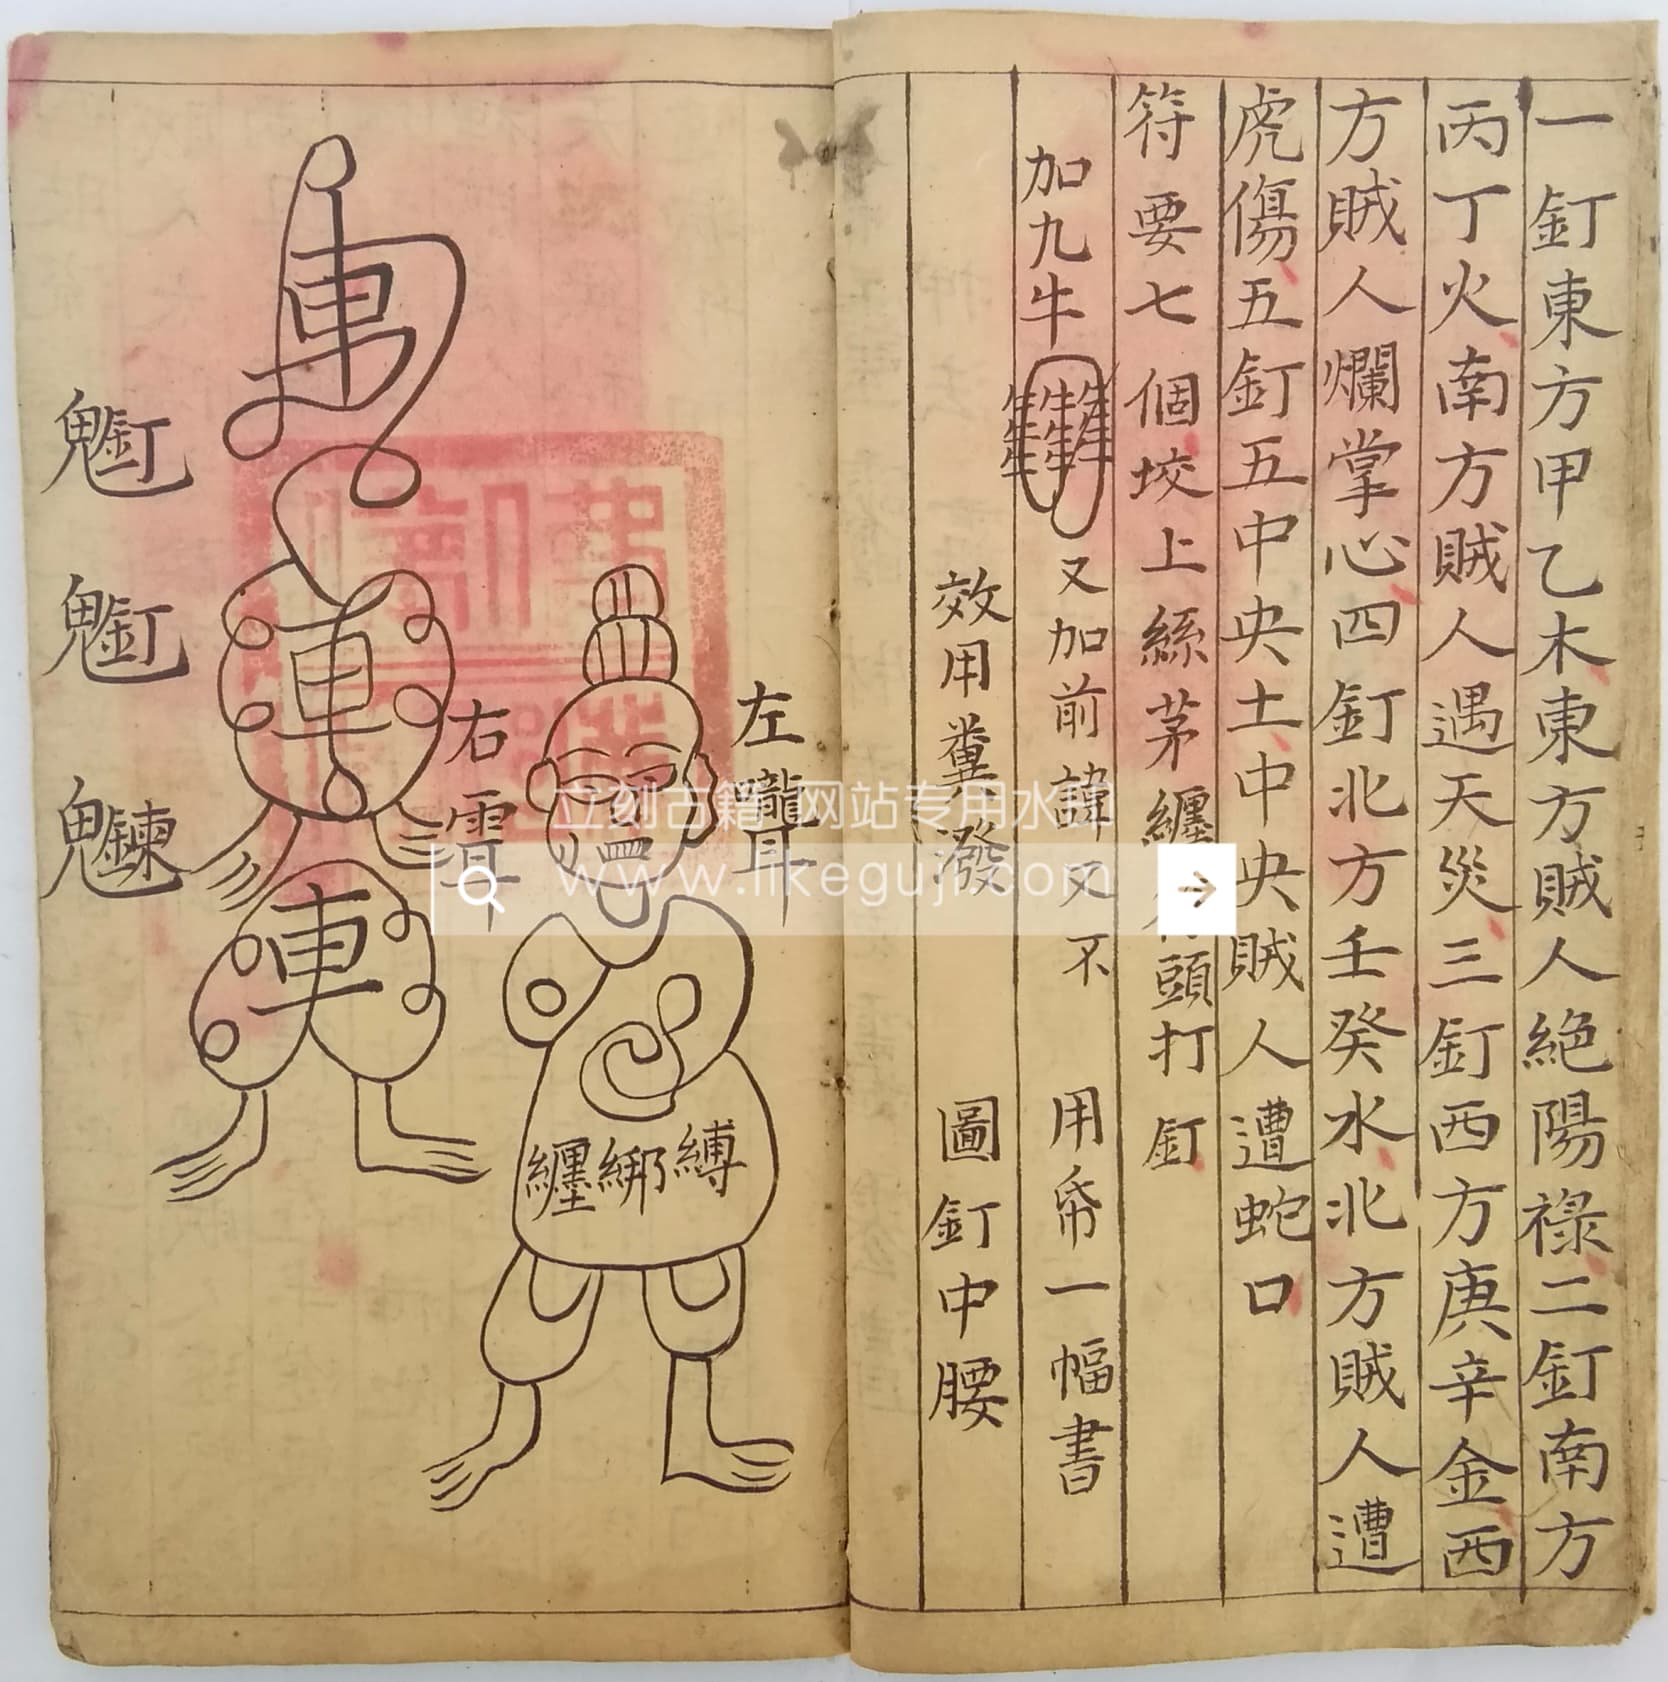 一釘東方甲乙木東方賊人絕陽祿二釘南方
丙丁火南方賊人遇天災三釘西方庚辛金西
方賊人爛掌心四釘北方壬癸水北方賊人遭
虎傷五釘五中央土中央賊人遭蛇口
符要七個坟上絲茅纏 頭打釘
加九牛 又加前諱又不 用帋一幅書
效用糞潑 圖釘中腰
左聾耳
右
纏綁縛
車
車
車
立刻古籍 网站专用水印
www.likeguji.com